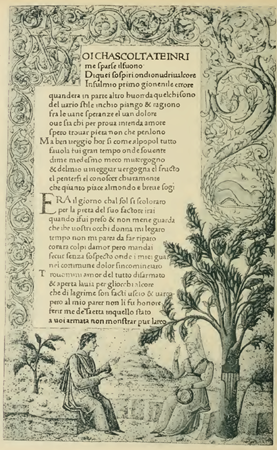 OI CHASCOLTATE IN RI
me sparse ilsuono
Di quei sospiri ondio nudriva lcore
In sul mio primo giovenile errore
quandera in parte altro huom da quel chi sono
del vario stile in chio piango & ragiono
fra le uane speranze el uan dolore
oue sia chi per proua intenda amore
spero trouar pieta non che perdono
Ma ben ueggio hor si come al popol tutto
fauola fui gran tempo onde souente
di me medesimo meco mi uergogno
& del mio uaneggiar uergogna el fructo
el pentersi el conoscer chiaramente
che quanto piace al mondo e breue sogno
ERA il giorno chal sol si scoloraro
per la pieta del suo factore i rai
quando i fui preso & non me ne guardai
che i be uostri occhi donna mi legaro
tempo non mi parea da far riparo
contra colpi damor pero mandai
secur senza sospecto onde i miei guai
nel commune dolor sincominciaro
Trouommi amor del tutto disarmato
& aperta la uia per gliocchi al core
che di lagrime son facti uscio & uarco
pero al mio parer non li fu honore
ferir me de saetta in quello stato
a uoi armata non mostrar pur larco